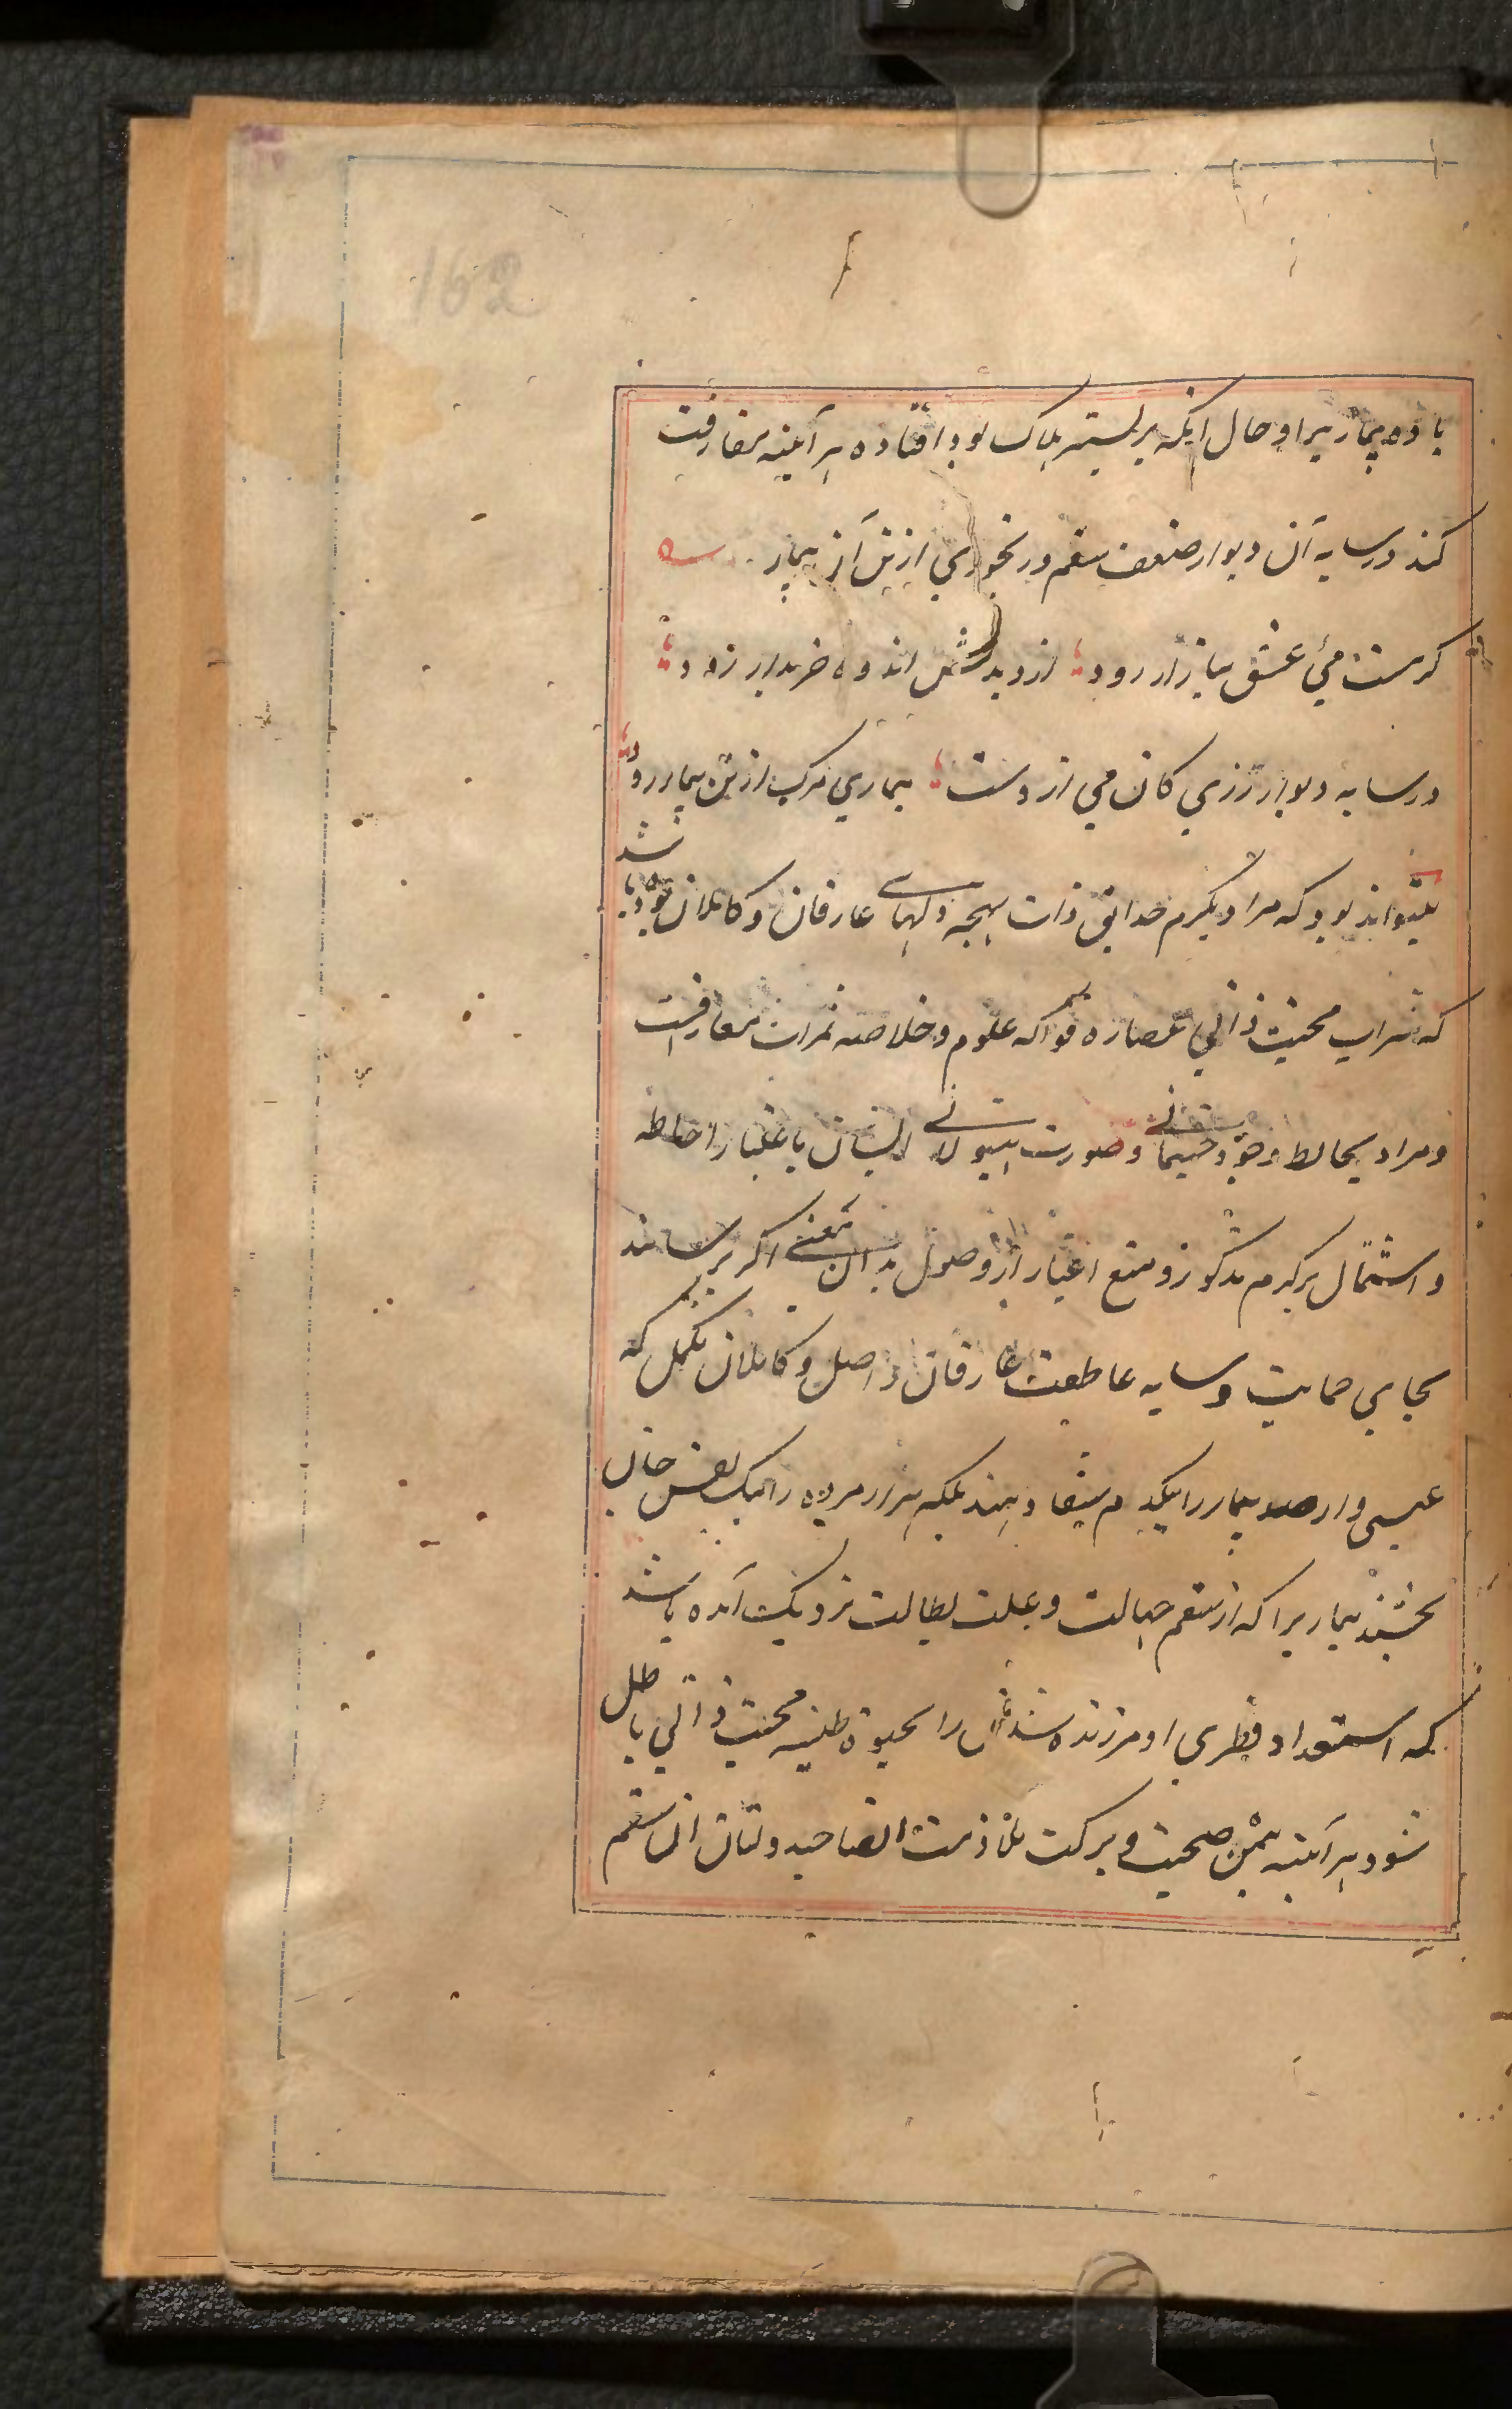 162
باده بیماریرا و حال اینکه بر بستر هلاک بود افتاده هر آینه مفارقت
کند در سایه آن دیوار ضعف سقم و رنجوری از تن آن بیمار
کر مست مئ عشق ببازار رود از دیدنش اندوه خریدار رود
در سایه دیوار رزی کان می ازوست بیماری مرک از تن بیمار رود
میتواند بود که مراد بکرم حدایق ذات بهجه دلهای عارفان و کاملان بوده باشد
که شراب محبت ذاتی عصاره فواکه علوم و خلاصه ثمرات معارفست
و مراد بحایط وجود جسمانی و صورت هیولانی ایشان باعتبار احاطه
و اشتمال بر کرم مذکور و منع اغیار از وصول بدان یعنی اگر برسانند
بجای حمایت و سایه عاطفت عارفان واصل و کاملان مکمل که
عیسی وار صد بیمار را بیکدم شفا دهند بلکه هزار مرده را بیک نفس جان
بخشند بیماریرا که از سقم جهالت و علت بطالت نزدیک آمده باشد
که استعداد فطری او مر زنده شدن را بحیوة طیبه محبت ذاتی باطل
شود هر آینه بیمن صحبت و برکت ملازمت انصاحبدولتان ان سقم